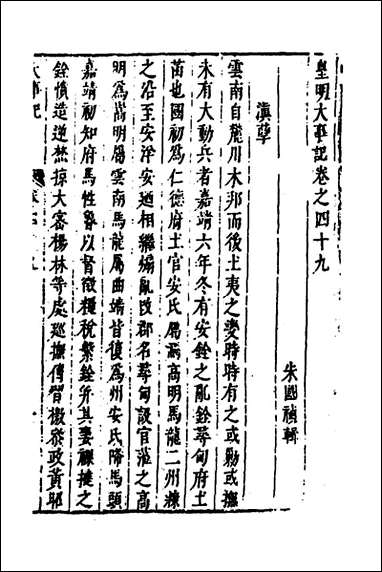 皇明大事記卷之四十九
朱國禎輯
滇孽
雲南自麓川木邦而後土夷之變時時有之或勦或撫
未有大動兵者嘉靖六年冬有安銓之亂銓尋甸府土
酋也國初爲仁德府土官安氏屬嵩明馬龍二州
之沿至安洋安迺相繼煽亂改郡名尋甸設官涖之嵩
明爲嵩明屬雲南馬龍屬曲靖皆復爲州安氏降馬頭
嘉靖初知府馬性魯以督徵糧稅繫銓并其妻裸撻之
銓憤造逆焚掠大害楊林等處巡撫傅習檄參政黃
大事記